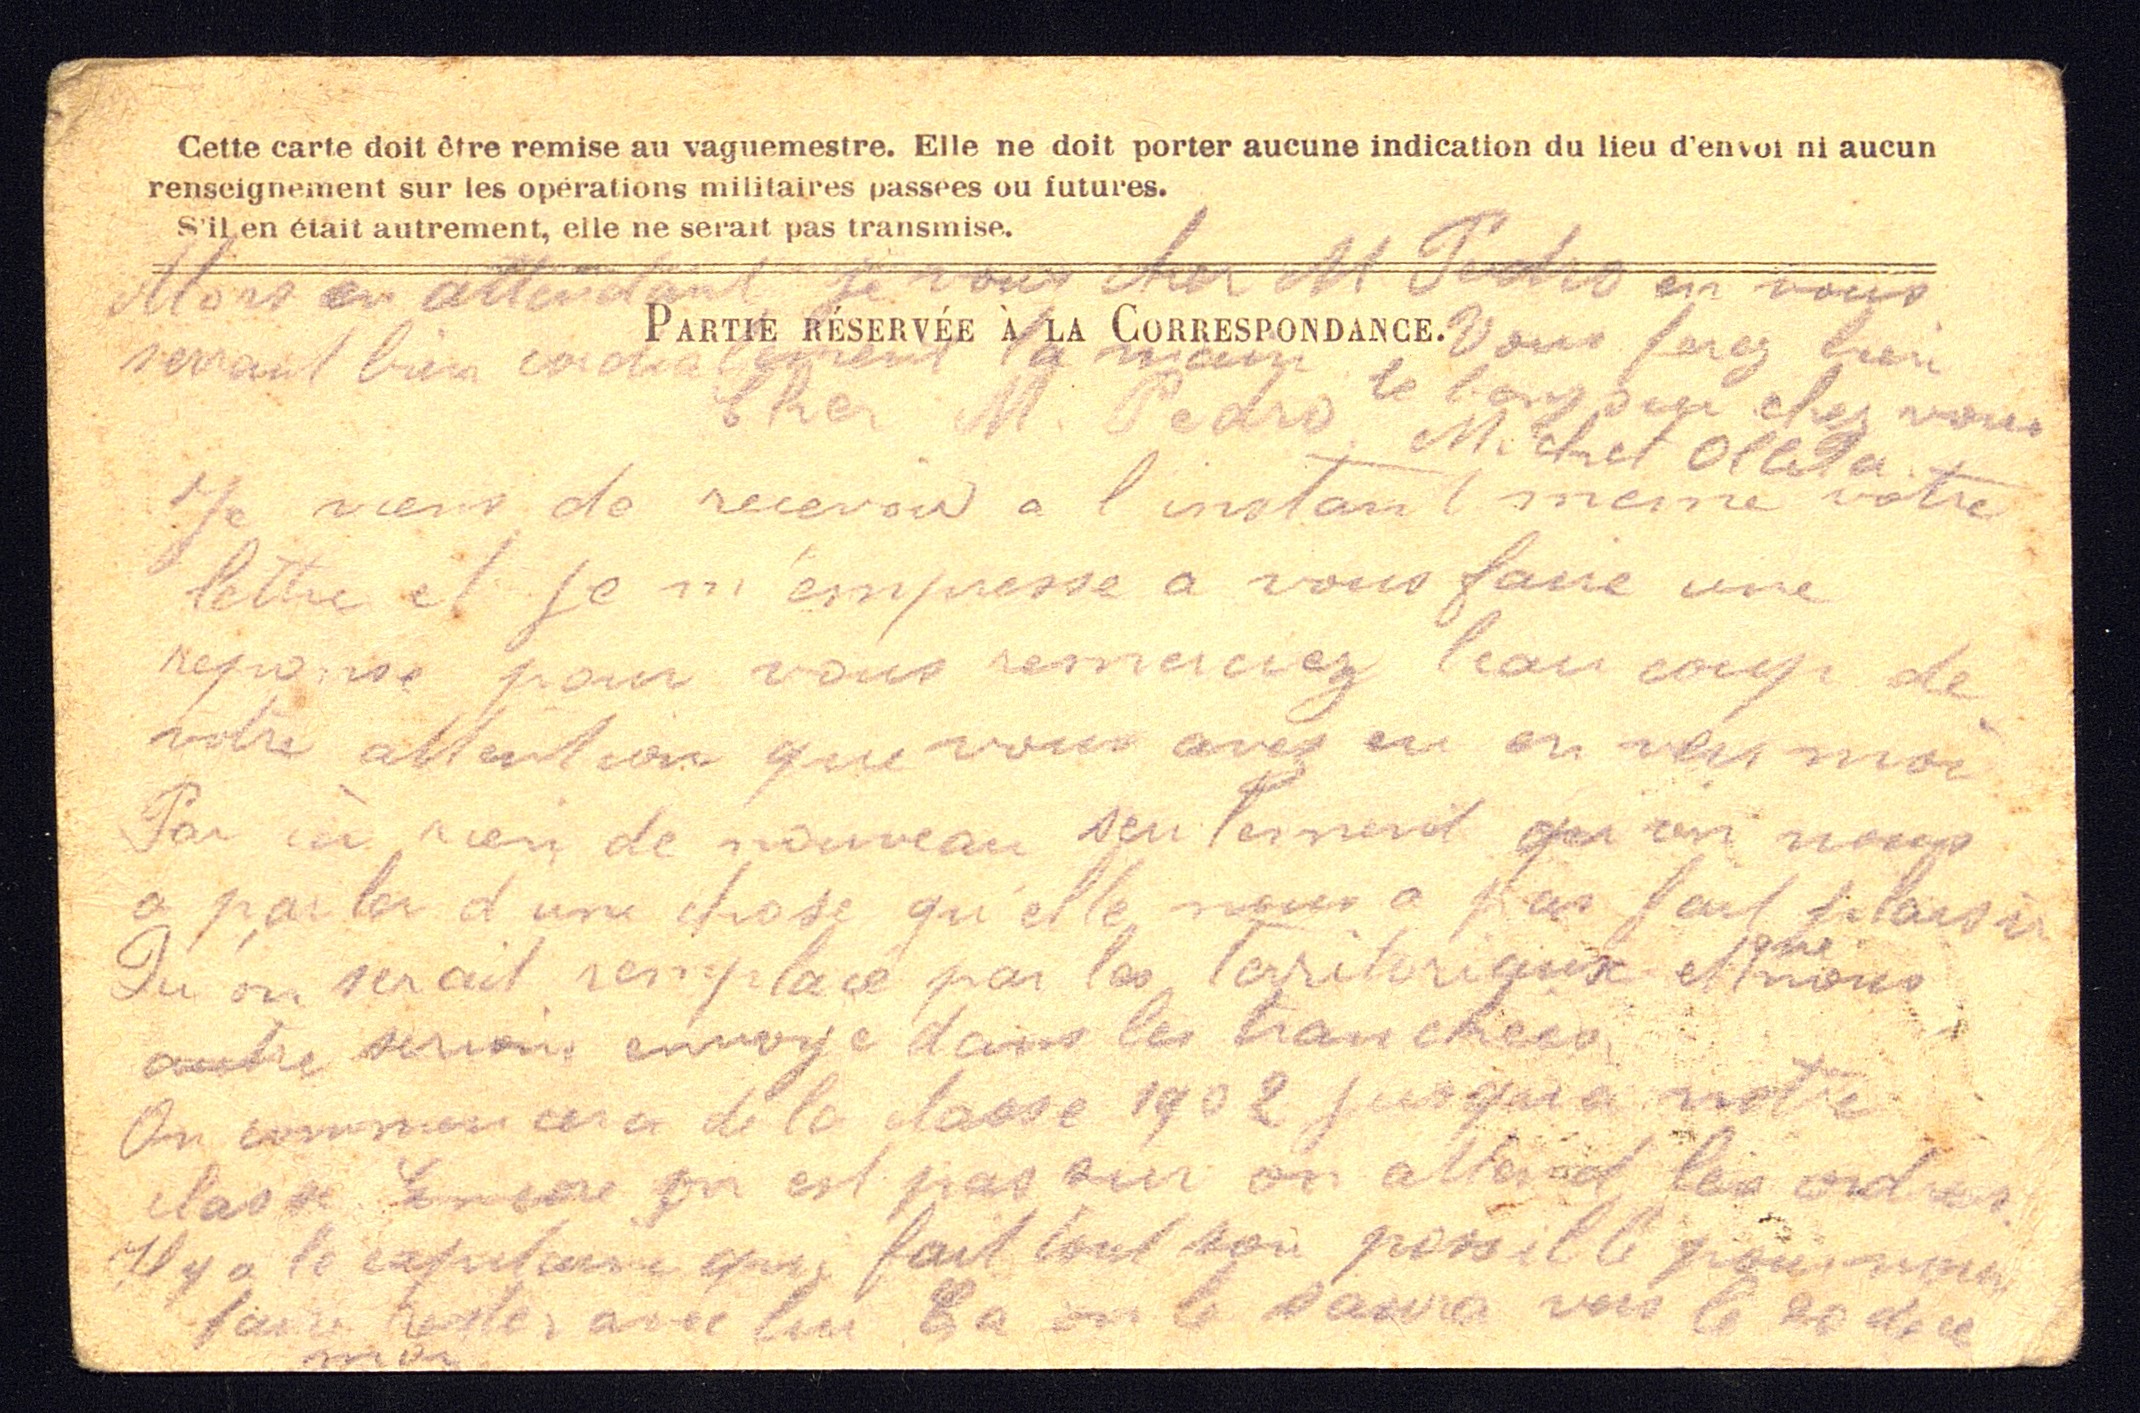 Cette carte doit être remise au vaguemestre. Elle ne doit porter aucune indication du lieu d'envoi ni aucun
renseignement sur les opérations militaires passées ou futures.
S'il en était autrement, elle ne serait pas transmise.
Alors en attendant je vous cher M Pedro en vous
PARTIE RÉSERVÉE À LA CORRESPONDANCE.
serrant bien cordialement la main Vous ferez bien
le bonjour chez vous
Cher M. Pedro
Michel
Je viens de recevoir a l'instant meme votre
lettre et je m'empresse a vous faire une
reponse pour vous remerciez beaucoup de
votre attention que vous aves eu en vers moi
Par ici rien de nouveau seulement qu on nous
a parler d une chose qu'elle nous a pas fait plaisir
Qu on serait remplacé par les Territoriaux et que nous
autre serions envoye dans les tranchées
On commencera de la classe 1902 jusqua notre
classe Encore on est pas sur on attend les ordres.
Il y a le capitaine qui fait tout son possible pour nous
faire rester avec lui Ca on le saura vers le 20 de ce
moi